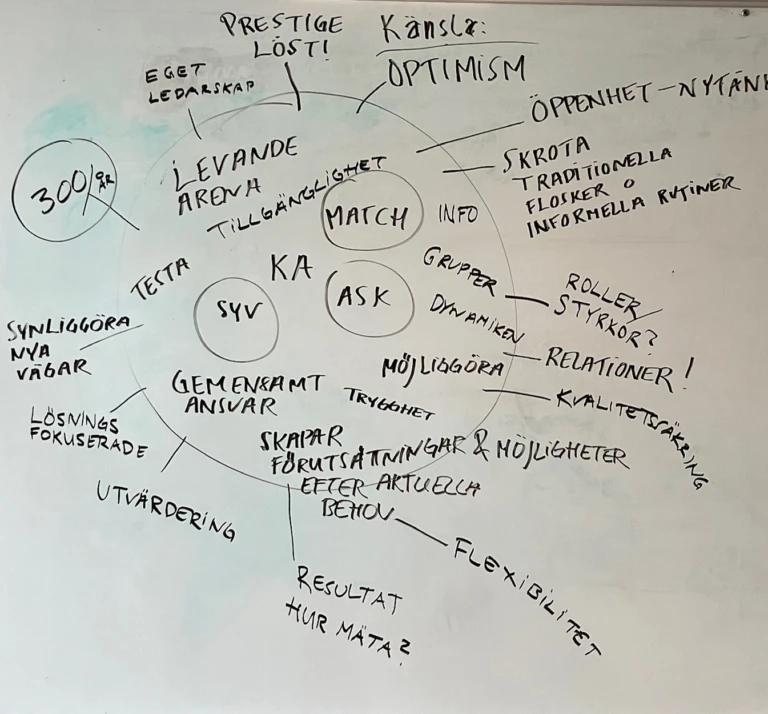 PRESTIGE
LÖST!
Känsla:
OPTIMISM
EGET
LEDARSKAP
ÖPPENHET - NYTÄNK
300/ÅR
LEVANDE
ARENA
TILLGÄNGLIGHET
MATCH
INFO
SKROTA
TRADITIONELLA
FLOSKER O
INFORMELLA RUTINER
TESTA
KA
SYV
ASK
GRUPPER
DYNAMIKEN
ROLLER/
STYRKOR?
RELATIONER!
SYNLIGGÖRA
NYA
VÄGAR
MÖJLIGGÖRA
KVALITETSSÄKRING
GEMENSAMT
ANSVAR
TRYGGHET
LÖSNINGS
FOKUSERADE
SKAPAR
FÖRUTSÄTTNINGAR & MÖJLIGHETER
EFTER AKTUELLA
BEHOV
UTVÄRDERING
FLEXIBILITET
RESULTAT
HUR MÄTA?